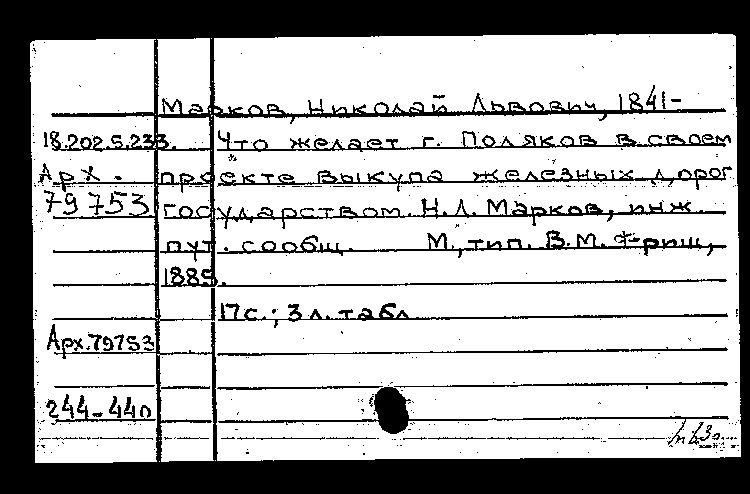 Марков, Николай Львович, 1841-
18.202.5.233. Что желает г. Поляков в своем
Арх. проекте выкупа железных дорог
79753 государством. Н.Л. Марков, инж.
пут. сообщ. М., тип. В.М. Фриш,
1885.
17 с.; 3 л. табл
Арх.79753
244-440